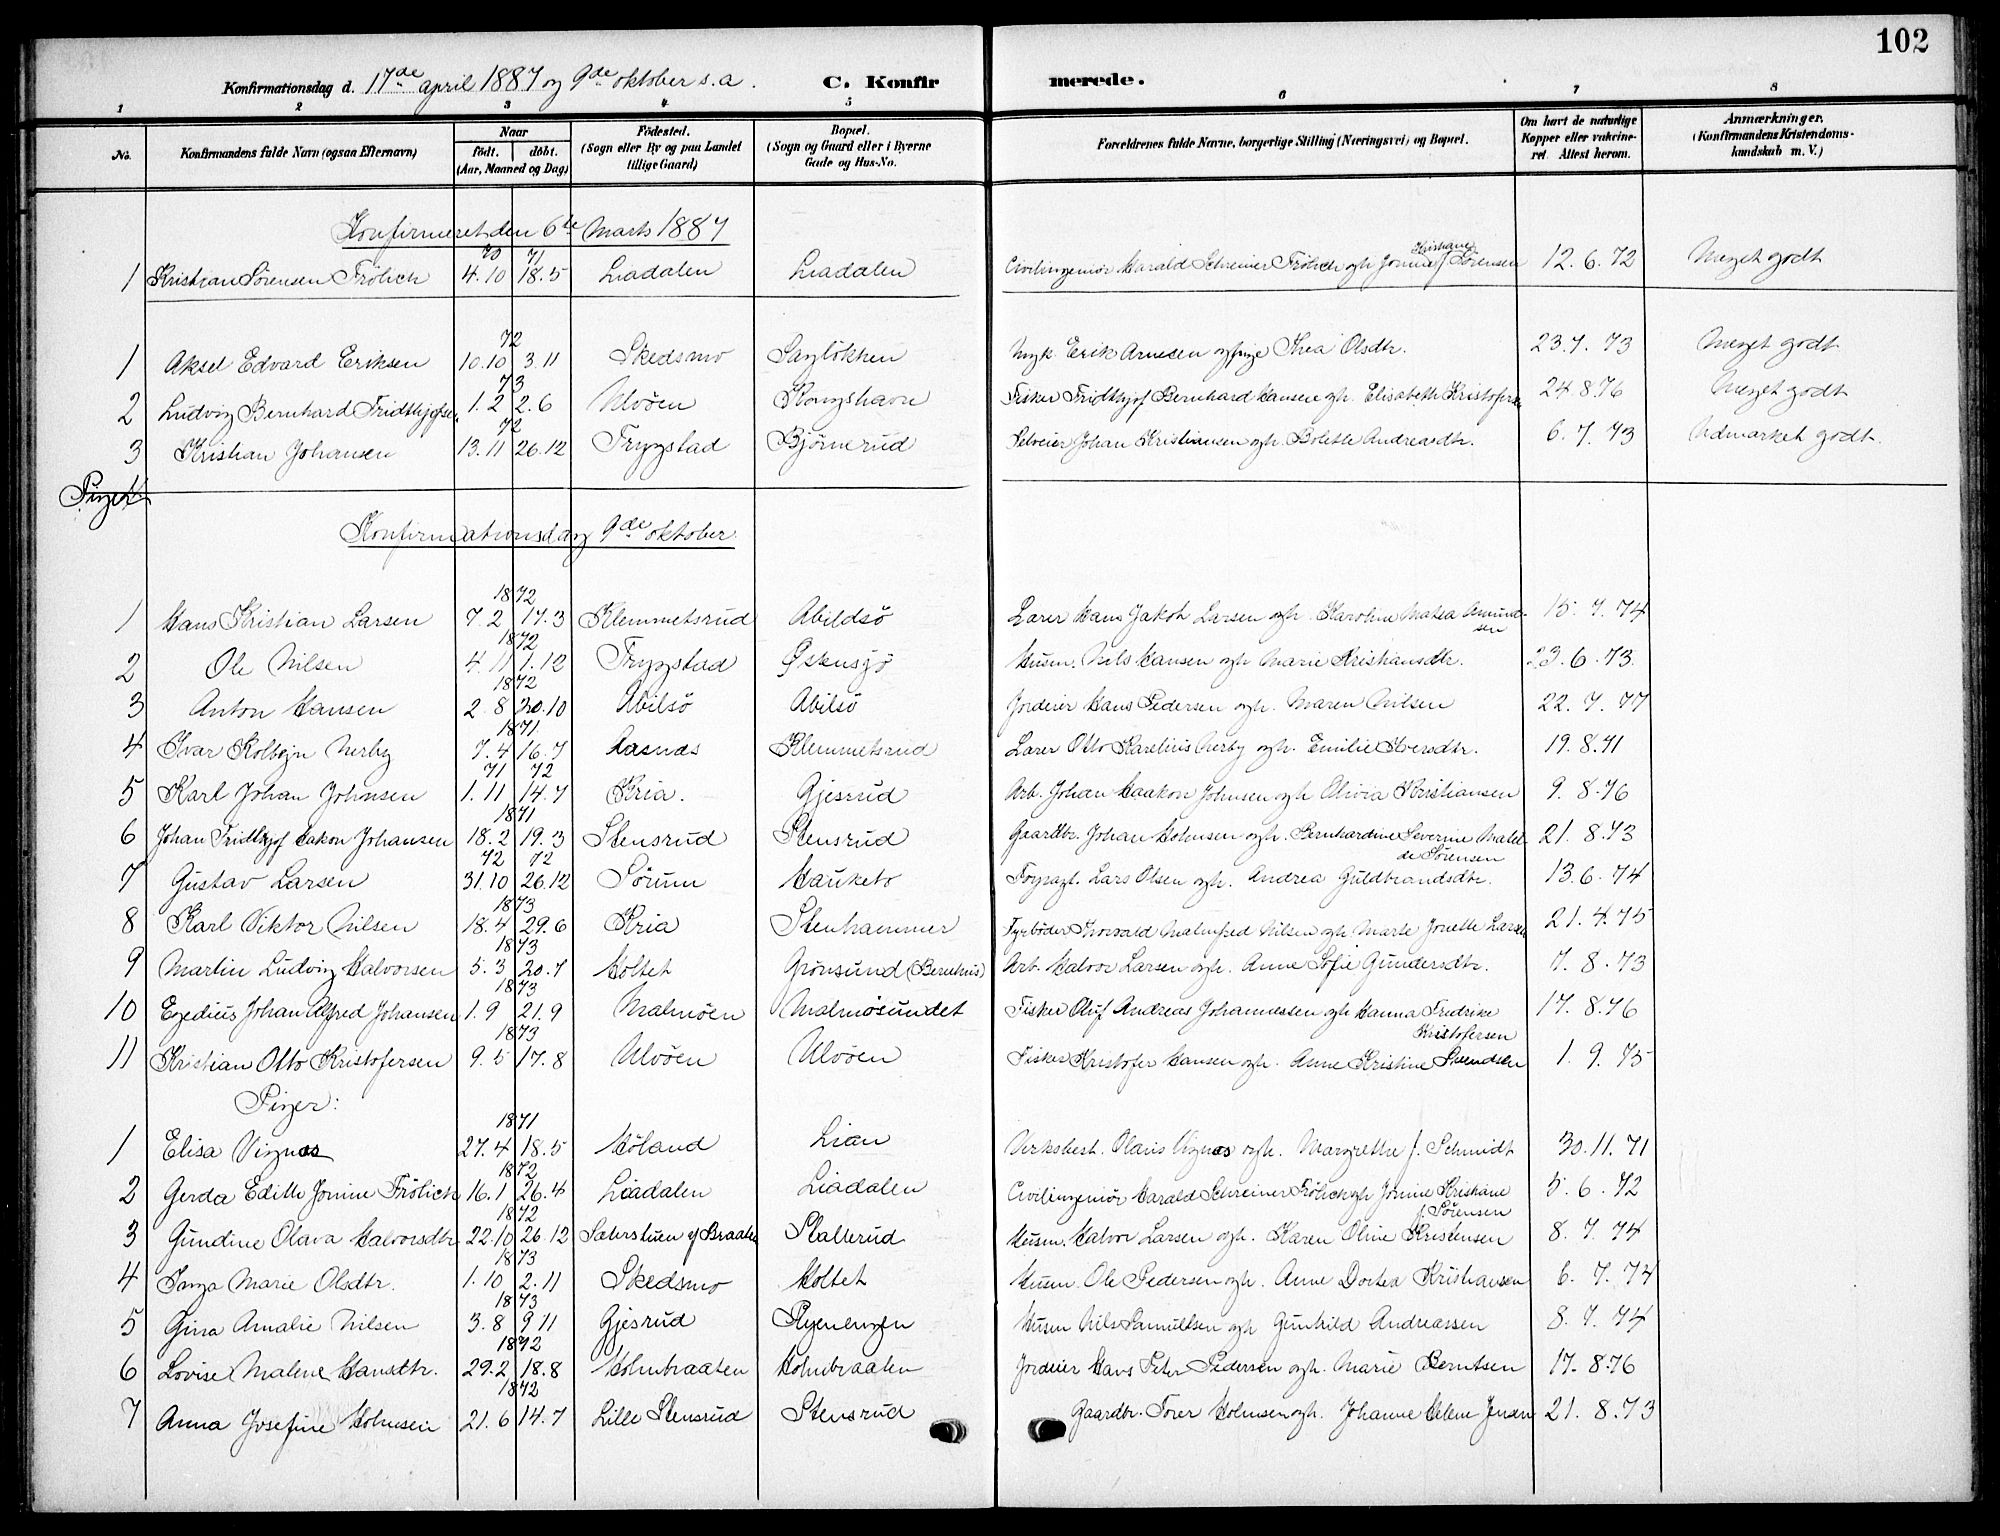 102
Konfirmationsdag d. 17de april 1887 og 9de oktober s.a. C. Konfirmerede.
1 2 3 4 5 6 7 8
No. Konfirmandens fulde Navn (ogsaa Efternavn) Naar födt. döbt. (Aar, Maaned og Dag) Födested. (Sogn eller By og paa Landet tillige Gaard) Bopæl. (Sogn og Gaard eller i Byerne Gade og Hus-No. Forældrenes fulde Navne, borgerlige Stilling (Næringsvei) og Bopæl. Om havt de naturlige Kopper eller vakcineret. Attest herom. Anmærkninger. (Konfirmandens Kristendomskundskab m. V.)
Konfirmeret den 6te Marts 1887
70 71 Kristiane
1 Kristian Sörensen Frölich 4.10 18.5 Liadalen Liadalen Civilingeniör Harald Schreiner Frölich og h. Jonine f. Sörensen 12.6.72 Meget godt
72
1 Aksel Edvard Eriksen 10.10 3.11 Skedsmo Sagløkken Ungk. Erik Arnesen og pige Thea Olsdtr. 23.7.73 Meget godt
73
2 Ludvig Bernhard Fridthjofsen 1.2 2.6 Ulvöen Kongshavn Fisker Fridthjof Bernhard Hansen og h. Elisabeth Kristofersen 24.8.76 Meget godt
72
3 Kristian Johansen 13.11 26.12 Trygstad Bjørnerud Selveier Johan Kristiansen og h. Bolette Andreasdtr. 6.7.73 Udmærket godt.
Konfirmationsdag 9de oktober.
1872
1 Hans Kristian Larsen 7.2 17.3 Klemmetsrud Abildsö Lærer Hans Jakob Larsen og h. Karoline Matea Amundsen 15.7.74
1872
2 Ole Nilsen 4.11 1.12 Trygstad Østensjø Husm. Nils Hansen og h. Marie Kristiansdtr. 23.6.73.
1872
3 Anton Hansen 2.8 20.10 Abilsö Abilsö Jordeier Hans Pedersen og h. Maren Nilsen 22.7.77
1871
4 Ivar Kolbejn Nerby 7.4 16.7 Aasnæs Klemmetsrud Lærer Otto Karelius Nerby og h. Emilie Iversdtr. 19.8.71
71 72
5 Karl Johan Johnsen 1.11 14.7 Kria. Gjesrud Arb. Johan Haakon Johnsen og h. Olivia Kristiansen 9.8.76
1871
6 Johan Fridthjof Hakon Johansen 18.2 19.3 Stensrud Stensrud Gaardbr. Johan Holmsen og h. Bernhardine Severine Matilde Sörensen 21.8.73
72 72
7 Gustav Larsen 31.10 26.12 Sörum Hauketo Lars Olsen og h. Andrea Guldbrandsdtr. 13.6.74
1873
8 Karl Viktor Nilsen 18.4 29.6 Kria Stenhammer Fyrböder Thorvald Malmfred Nilsen og h. Marte Jonette Larsen 21.4.75
1873
9 Martin Ludvig Halvorsen 5.3 20.7 Holtet Grönsund Arb. Halvor Larsen og h. Anne Sofie Gundersdtr. 7.8.73
1873
10 Egedius Johan Alfred Johansen 1.9 21.9 Malmöen Malmösundet Fisker Oluf Andreas Johannessen og h. Hanna Fredrike Kristofersen 17.8.76
1873
11 Kristian Otto Kristofersen 9.5 17.8 Ulvöen Ulvöen Fisker Kristofer Hansen og h. Anne Kristine Svendsen 1.9.75
Piger:
1871
1 Elisa Vignæs 27.4 18.5 Höland Lian Verksbest. Olaus Vignæs og h. Margrethe f. Schmidt 30.11.71
1872
2 Gerda Edille Jonine Frölich 16.1 26.4 Liadalen Liadalen Civilingeniör Harald Schreiner Frölich og h. Jonine Kristiane f. Sörensen 5.6.72
1872
3 Gundine Olava Halvorsdtr. 22.10 26.12 Sæterstuen Skullerud Husm. Halvor Larsen og h. Karen Oline Kristensen 8.7.74
1873
4 Inga Marie Olsdtr. 1.10 2.11 Skedsmo Holtet Husm. Ole Pedersen og h. Anne Dortea Kristiansen 6.7.74
1873
5 Gina Amalie Nilsen 3.8 9 11 Gjesrud Ryenengen Husm Nils Samuelsen og h Gunhild Andreassen 8.7.74
1872
6 Lovise Malene Hansdtr. 29.2 18.8 Holmbraaten Holmbraaten Jordeier Hans Peter Pedersen og h. Marie Berntsen 17.8.76
1872
7 Anna Josefine Holmsen 21.6 14.7 Lille Stensrud Stensrud Gaardbr. Torer Holmsen og h. Johanne Helene Jensen 21.8.73